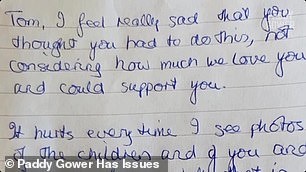 Tom, I feel really sad that you
thought you had to do this, not
considering how much we love you
and could support you.
It hurts everytime I see photos
of the children and if you are
© Paddy Gower Has Issues